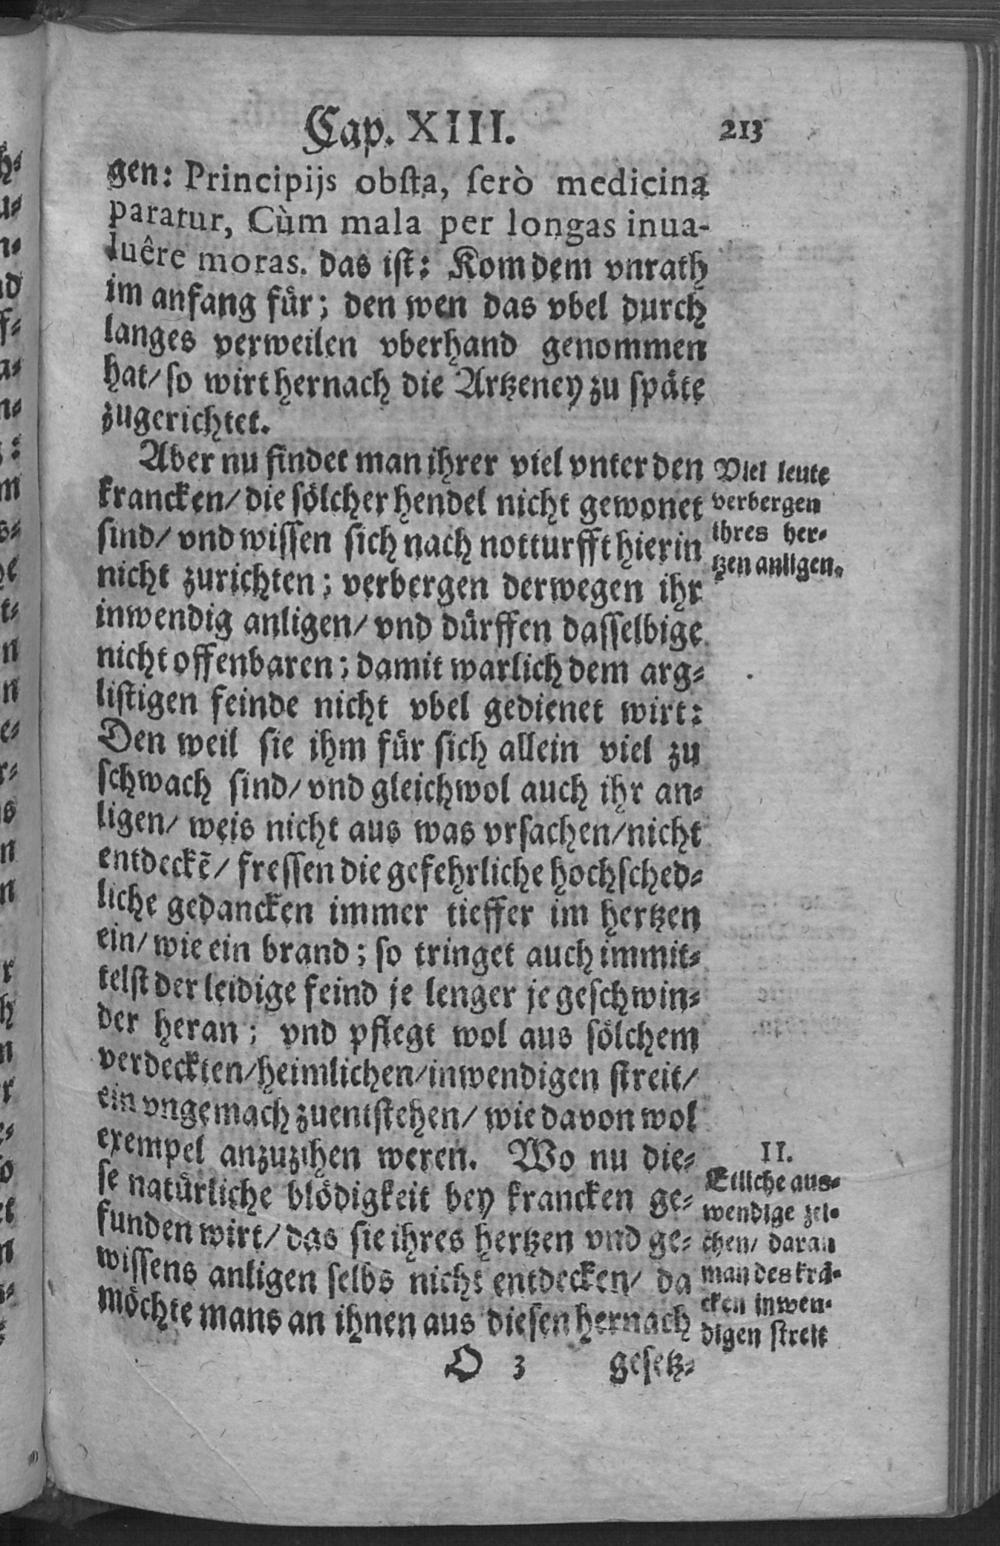 Cap. XIII. 213
gen: Principijs obsta, serò medicina
paratur, Cùm mala per longas inua-
luêre moras. das ist: Kom dem vnrath
im anfang fuͤr; den wen das vbel durch
langes verweilen vberhand genommen
hat/ so wirt hernach die Artzeney zu spaͤte
zugerichtet.
Aber nu findet man ihrer viel vnter den
krancken/ die soͤlcher hendel nicht gewonet
sind/ vnd wissen sich nach notturfft hierin
nicht zurichten; verbergen derwegen ihr
inwendig anligen/ vnd duͤrffen dasselbige
nicht offenbaren; damit warlich dem arg-
listigen feinde nicht vbel gedienet wirt:
Den weil sie ihm fuͤr sich allein viel zu
schwach sind/ vnd gleichwol auch ihr an-
ligen/ weis nicht aus was vrsachen/ nicht
entdeckẽ/ fressen die gefehrliche hochsched-
liche gedancken immer tieffer im hertzen
ein/ wie ein brand; so tringet auch immit-
telst der leidige feind je lenger je geschwin-
der heran; vnd pflegt wol aus soͤlchem
verdeckten/ heimlichen/ inwendigen streit/
ein vngemach zuentstehen/ wie davon wol
exempel anzuzihen weren. Wo nu die-
se natuͤrliche bloͤdigkeit bey krancken ge-
funden wirt/ das sie ihres hertzen vnd ge-
wissens anligen selbs nicht entdecken/ da
moͤchte mans an ihnen aus diesen hernach
O 3 gesetz-
Viel leute
verbergen
ihres her-
tzen anligen.
II.
Etliche aus-
wendige zei-
chen/ daran
man des krã-
cken inwen-
digen streit